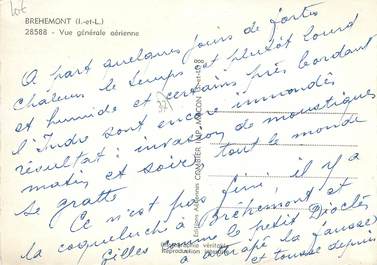 lot
BREHEMONT (I.-et-L.)
28588 - Vue générale aérienne
A part quelques jours de fortes
chaleurs le temps est plutôt lourd
et humide et certains prés bordant
l'Indre sont encore inondés
résultat : invasion de moustiques
matin et soir, tout le monde
se gratte.
Ce n'est pas fini, il y a
la coqueluche à Bréhemont et
Gilles comme le petit
a attrapé la fausse
et tousse depuis
CIM
COMBIER IMP. MACON